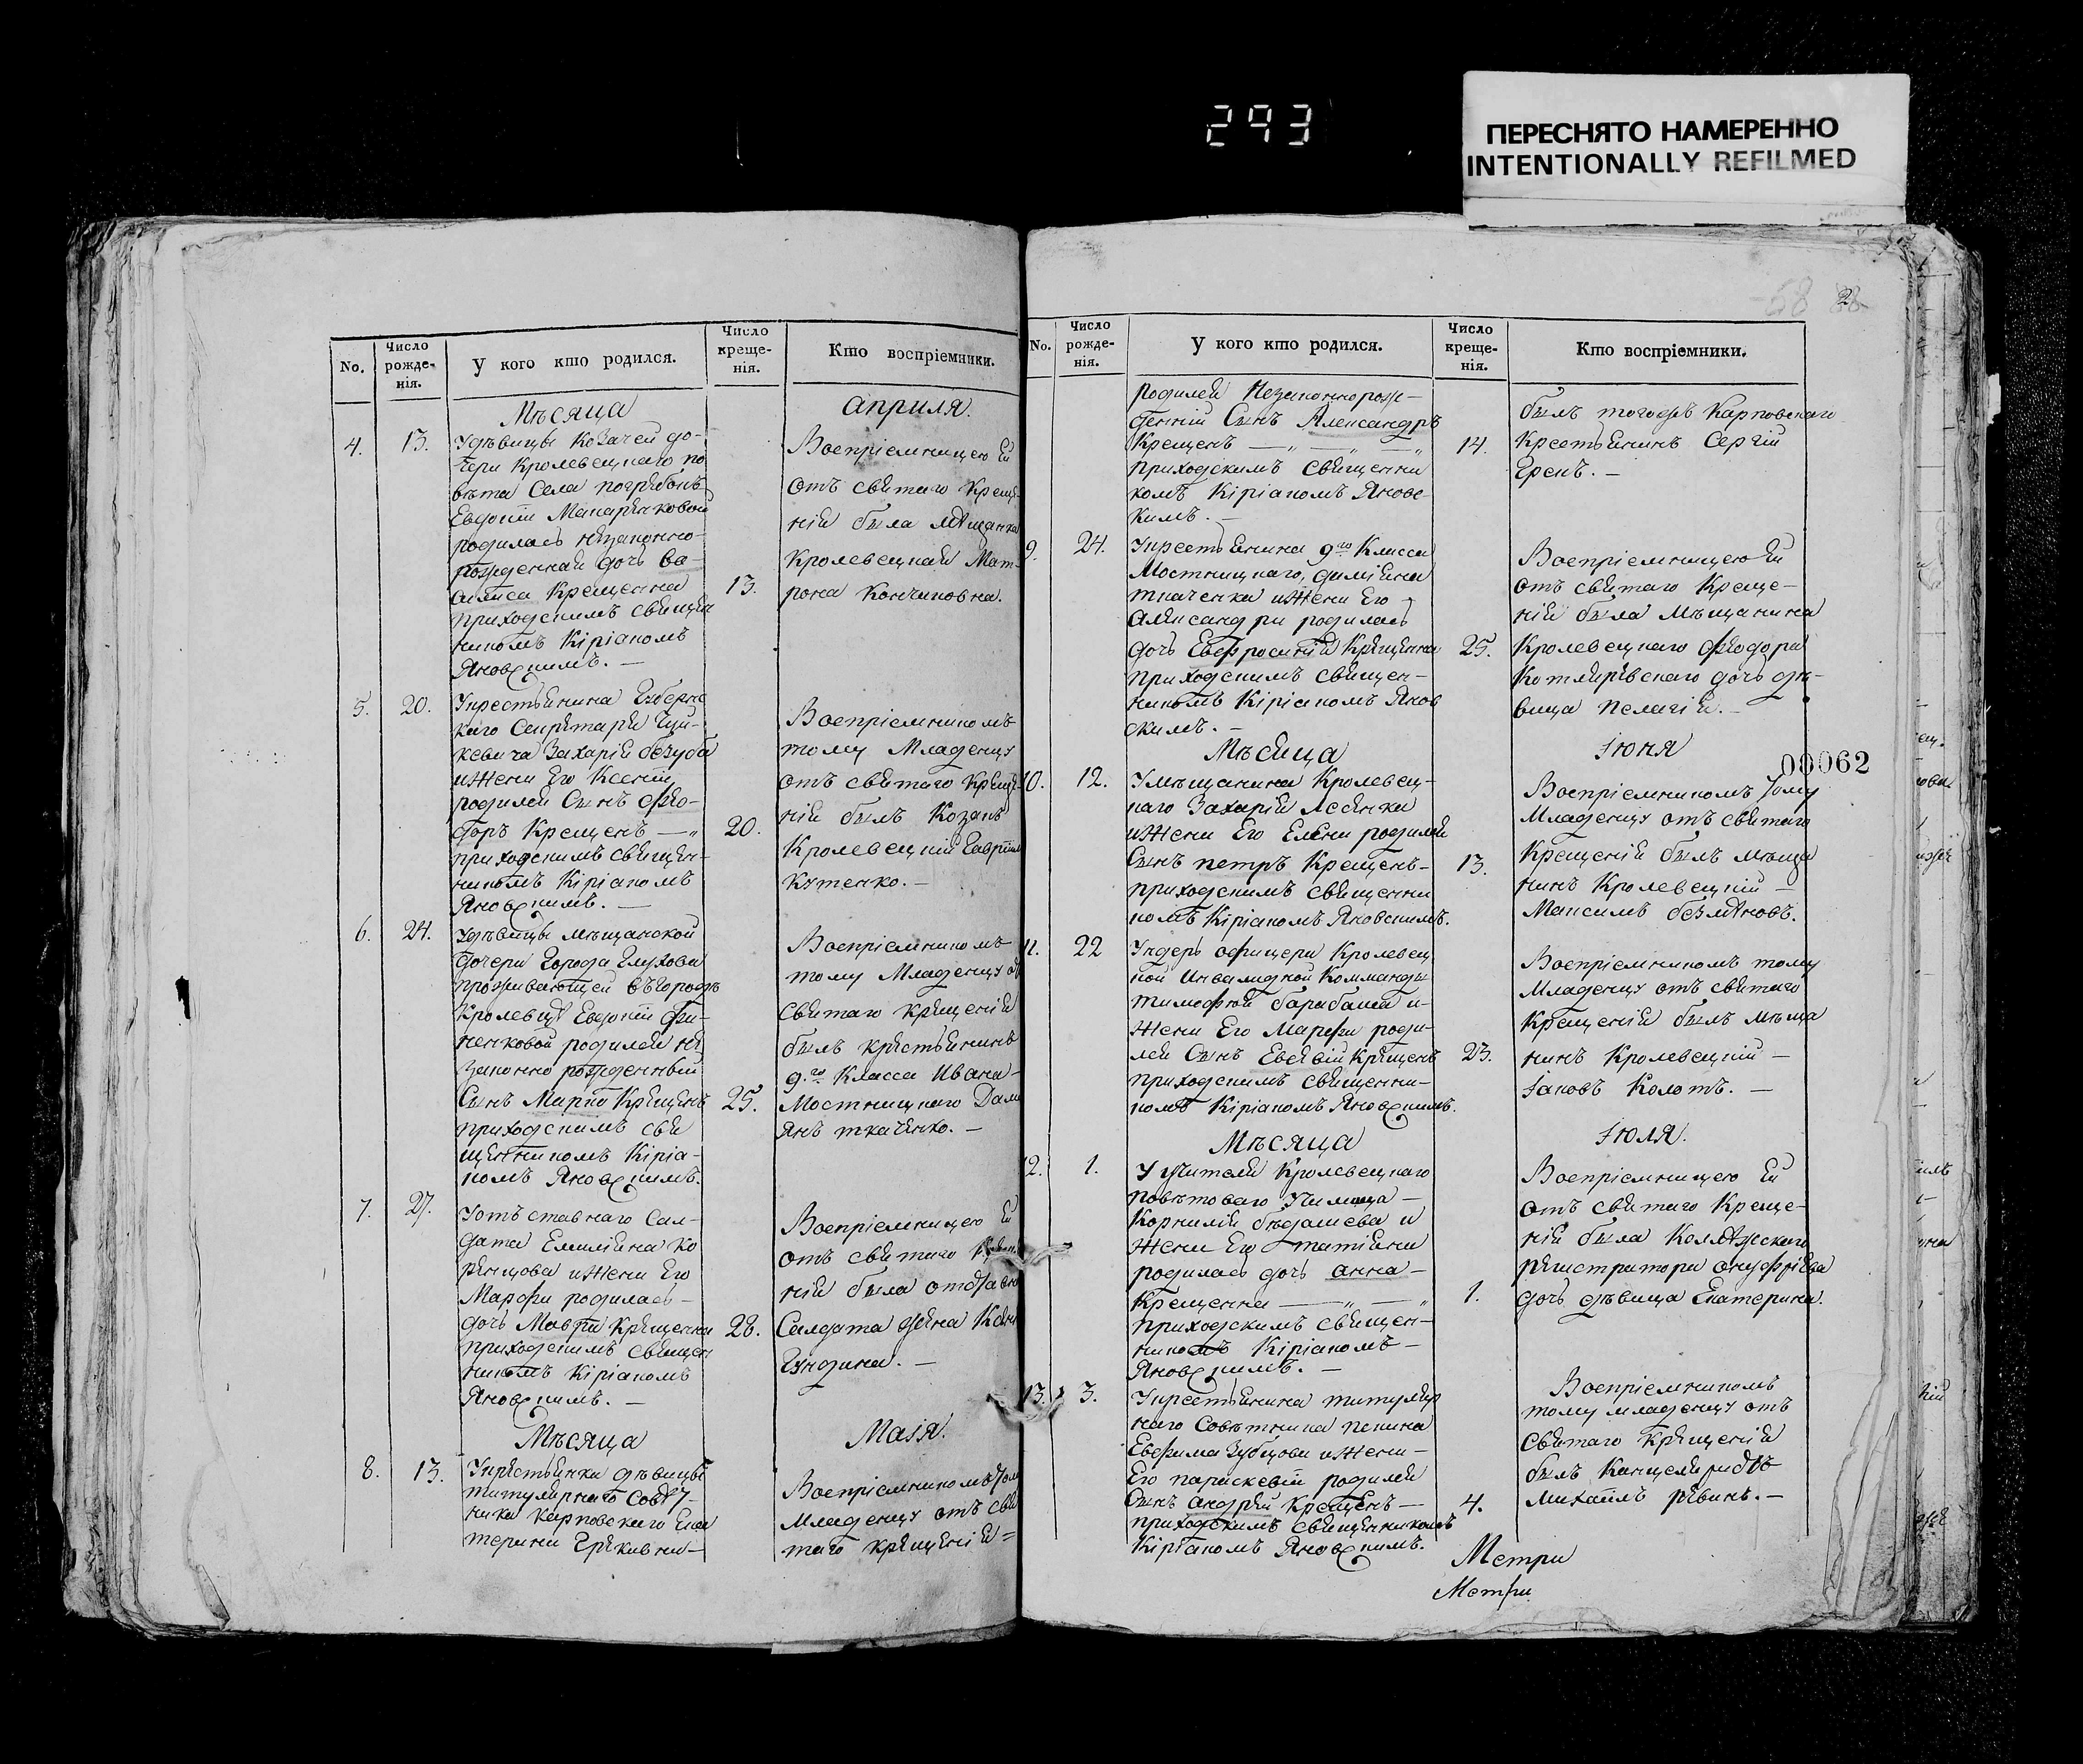 293
ПЕРЕСНЯТО НАМЕРЕННО
INTENTIONALLY REFILMED
No.
Число рожде-нія.
У кого кто родился.
Число креще-нія.
Кто воспріемники.
Мѣсяца
Априля.
4.
13.
Удѣвицы Козачей до-
чери Кролевецкаго по
вѣта Села погребокъ
Евдокіи Макаренковой
родилась незаконно-
рожденная дочь Ва-
силиса Крещенна
приходскимъ Священ
никомъ Кіріакомъ
Яновскимъ. —
13.
Воспріемницею Ей
отъ святаго Креще
нія была мѣщанка
Кролевецкая Мат-
рона Кончиковна.
5.
20.
Укрестьянина Губернс
каго Секретаря Чуй-
кевича Захарія безуба
иЖены Его Ксеніи
родился Сынъ Фео-
доръ Крещенъ —„
приходскимъ священ-
никомъ Кіріакомъ
Яновскимъ. —
20.
Воспріемникомъ
тому Младенцу
отъ святаго Креще
нія былъ Козакъ
Кролевецкій Гавріилъ
Кутенко. —
6.
24.
Удѣвицы мѣщанской
дочери Города Глухова
проживающей въгородѣ
Кролевцѣ Евдокіи
ненковой родился не
законно рожденный
Сынъ Марко Крещенъ
приходскимъ свя
щенникомъ Кіріа-
комъ Яновскимъ.
25.
Воспріемникомъ
тому Младенцу от
святаго крещенія
былъ крестьянинъ
9.го Класса Ивана-
Мостницкаго Дами
янъ ткаченко. —
7.
27.
Уотъставнаго Сал-
дата Емиліяна Ко
ренцова иЖены Его
Марфы родилась-
дочь Мавра Крещенна
приходскимъ Священ
никомъ Кіріакомъ
Яновскимъ. —
28.
Воспріемницею Ей
отъ святаго
нія была отставн
Салдата жена
Гундина. —
Мѣсяца
Маія.
8.
13.
Укрестьянки дѣвицы
титулярнаго Совѣт-
ника Карповскаго Ека
терины Ерековны-
Воспріемникомъ том
Младенцу отъ свя
таго крещенія=
2
No.
Число рожде-нія.
У кого кто родился.
Число креще-нія.
Кто воспріемники.
родился Незаконнорож-
денній Сынъ Александръ
Крещенъ —„ —„
приходскимъ Священни
комъ Кіріакомъ Яновс
кимъ. —
14.
былъ тогожъ Карповскаго
Крестьянинъ Сергій
Ерекъ. —
9.
24.
Укрестьянина 9го Класса
Мостницкаго, даміяна
ткаченка иЖены Его
Александры родилась
дочь Евфросинія Крещенна
приходскимъ Священ-
никомъ Кіріакомъ Янов
скимъ. —
25.
Воспріемницею Ей
отъ святаго Креще-
нія была Мѣщанина
Кролевецкаго Феодора
Котляревскаго дочь дѣ-
вица Пелагія. —
Мѣсяца
Іюня
00062
10.
12.
Умѣщанина Кролевец-
каго Захарія Лесенка
иЖены Его Елены родился
Сынъ петръ Крещенъ-
приходскимъ Священни
комъ Кіріакомъ Яновскимъ.
13.
Воспріемникомъ Тому
Младенцу отъ святаго
Крещенія былъ мѣща
нинъ Кролевецкій —
Максимъ безмѣновъ.
11.
22
Ундеръ офицера Кролевец
кой Инвалидной Комманды
тимофея барабаша и-
Жены Его Марфы роди-
лся Сынъ Евсевій Крещенъ
приходскимъ Священни-
комъ Кіріакомъ Яновскимъ.
23.
Воспріемникомъ тому
Младенцу отъ святаго
Крещенія былъ мѣща
нинъ Кролевецкій —
Іаковъ Колотъ. —
Мѣсяца
Іюля.
12.
1.
Учителя Кролевецкаго
повѣтоваго Училища —
Корнилія бѣдашева и
Жены Его татіяны
родилась дочь анна-
Крещенна —„ —„
приходскимъ священ-
никомъ Кіріакомъ-
Яновскимъ. —
1.
Воспріемницею Ей
отъ святаго Креще-
нія была Коллѣжскаго
регистратора онуфріева
дочь дѣвица Екатерина.
13.
3.
Укрестьянина титуляр
наго Совѣтника пекина
Евфима Зубцова иЖены-
Его параскевіи родился
Сынъ андрей Крещенъ —
приходскимъ священникомъ
Кіріакомъ Яновскимъ.
4.
Воспріемникомъ
тому младенцу отъ
святаго крещенія
былъ Канцеляристъ
михаилъ ревинъ. —
Метри
Метри